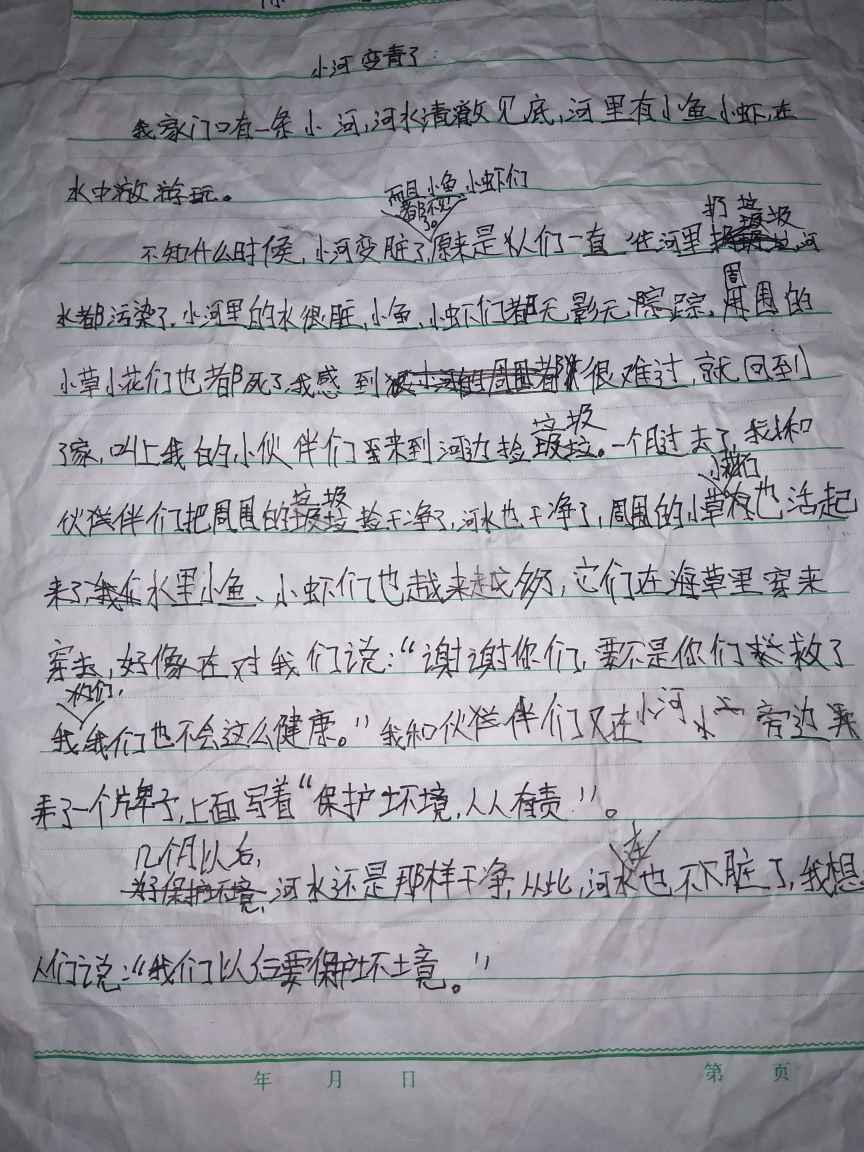 小河变青了
我家门口有一条小河,河水清澈见底,河里有小鱼小虾,在
水中游玩。
而且小鱼小虾们
都不见了。
不知什么时候,小河变脏了,原来是人们一直往河里打垃圾,河
水都污染了。小河里的水很脏,小鱼、小虾们都无影无踪,周围的
小草小花们也都死了,我感到很难过,就回到
了家,叫上我的小伙伴们来到河边捡垃圾。一个月过去了,我和
伙伴们把周围的垃圾捡干净了,河水也干净了,周围的小草小花们也活起
来了,水里小鱼、小虾们也越来越多了,它们在海草里穿来
穿去,好像在对我们说:“谢谢你们,要不是你们拯救了
我们,我们也不会这么健康。”我和伙伴们又在小河旁边弄
来了一个牌子,上面写着“保护坏境,人人有责”。
几个月以后,
河水还是那样干净,从此,河水也不在脏了,我想
人们说:“我们以后要保护坏境。”
年 月 日 第 页